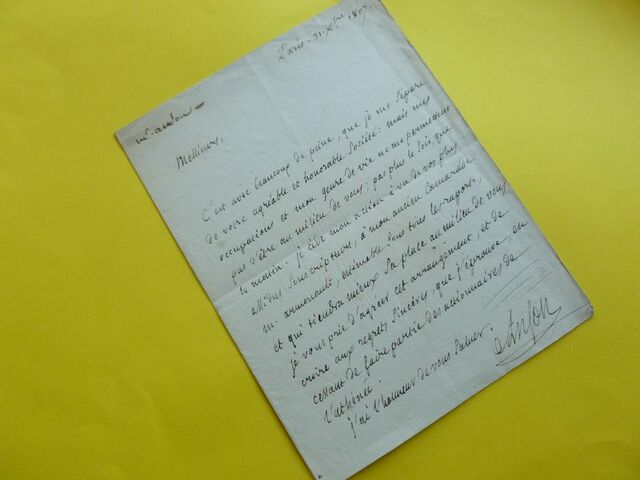 Paris. 31. Xbre 1807.
mr. anson
Messieurs,
C'est avec beaucoup de peine, que je me sépare
de votre agréable et honorable Société: mais mes
occupations et mon genre de vie ne me permettent
pas d'être au milieu de vous; pas plus le soir, que
le matin. je cède mon action à un de vos plus
assidus Souscripteurs, à mon ancien Camarade
m. armenault, estimable Sous tous les raports,
et qui tiendra mieux Sa place au milieu de vous
je vous prie d'agréer cet arrangement, et de
croire aux regrets Sincères, que j'éprouve, en
cessant de faire partie des actionnaires de
l'athénée.
j'ai l'honneur de vous Saluer.
Anson